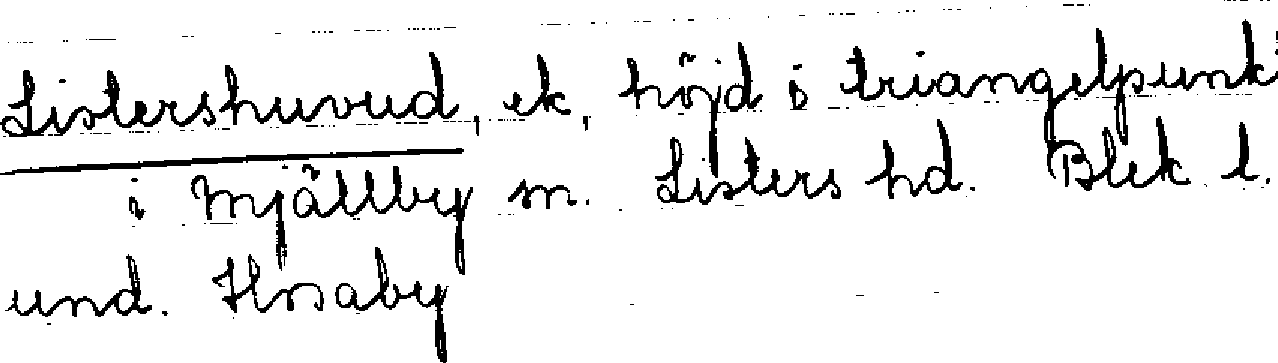 Listershuvud, ek, höjd i triangelpunkt
i Mjällby sn. Listers hd. Blek l.
und. Hosaby